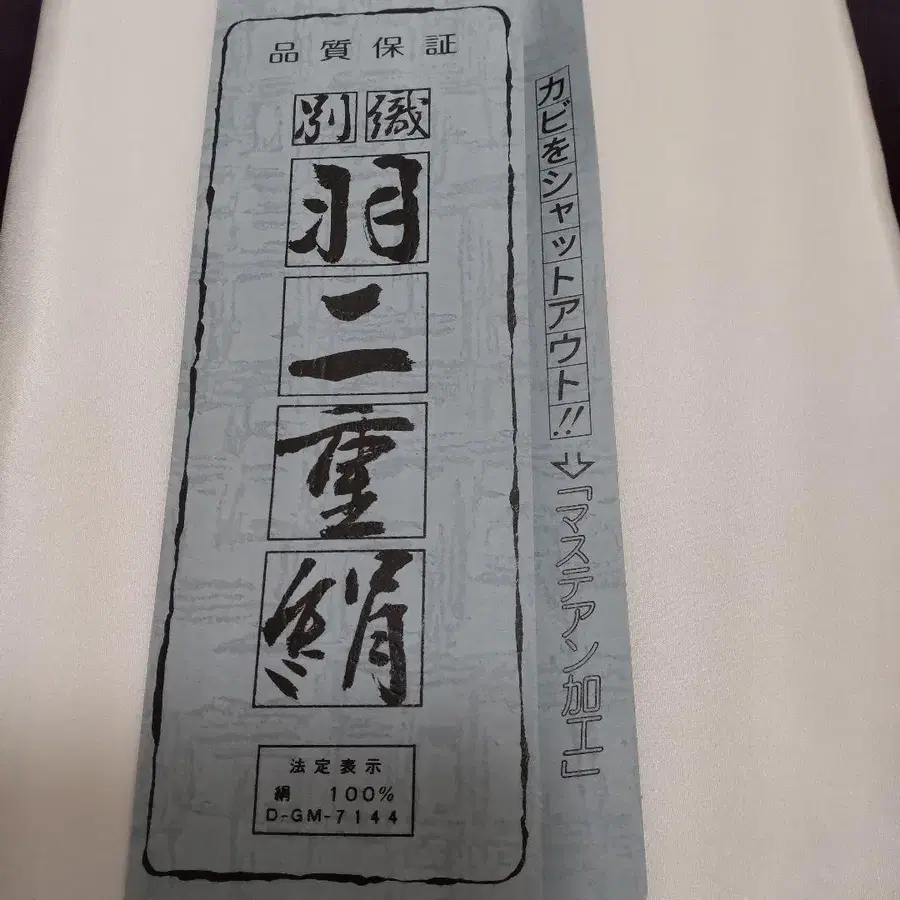 品質保証
別織
羽二重絹
法定表示
絹 100%
D-GM-7144
カビをシャットアウト!!
⇨「マステアン加工」